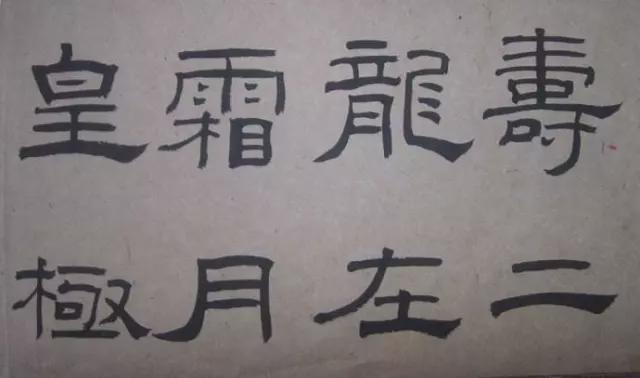 壽二
龍在
霜月
皇極